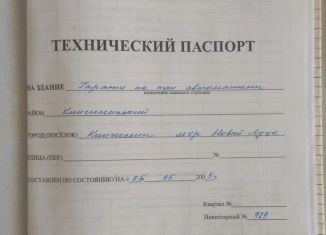 ТЕХНИЧЕСКИЙ ПАСПОРТ
НА ЗДАНИЕ Гаражи на три автомашины
РАЙОН Кингисеппский
ГОРОД (ПОСЕЛОК) Кингисепп мкр Новый Луцк
УЛИЦА (ПЕР.) №
СОСТАВЛЕН ПО СОСТОЯНИЮ НА « 06 05 200 г.
Квартал №
Инвентарный № 789